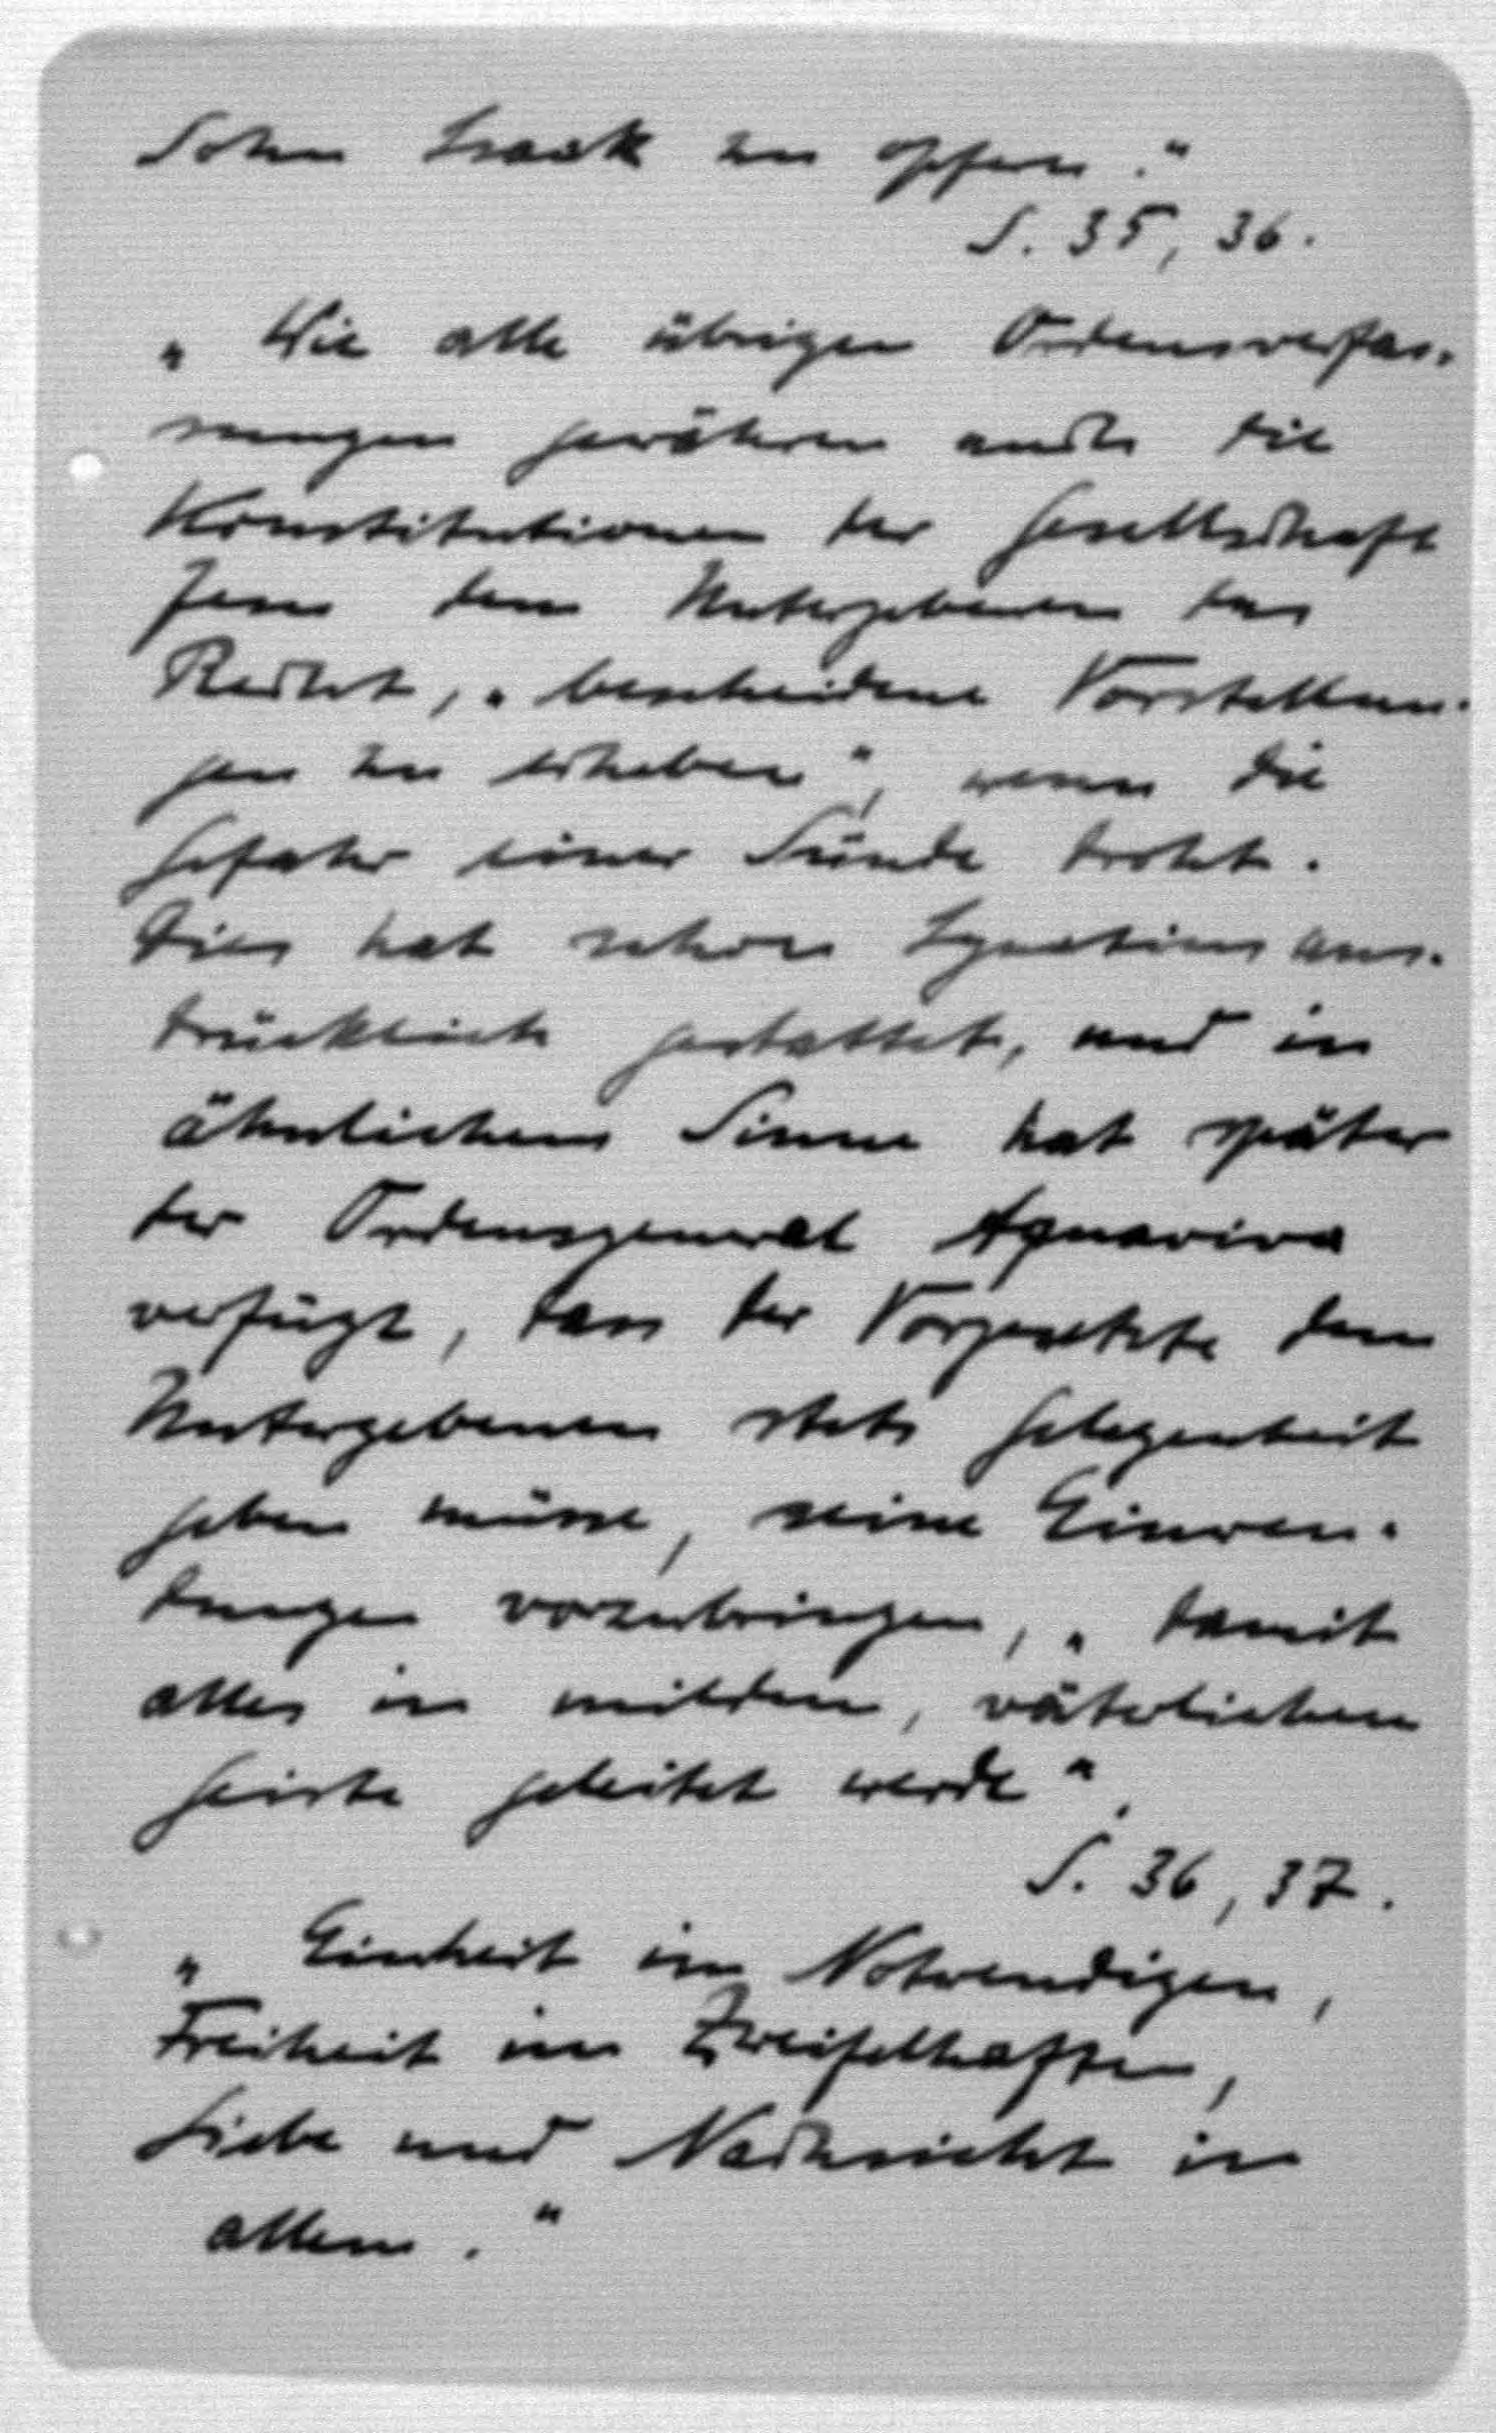 Sohn Isaak zu opfern."
S. 35, 36.
„Wie alle übrigen Ordensverfas-
sungen gewähren auch die
Konstitutionen der Gesellschaft
Jesu dem Untergebenen das
Recht, „bescheidene Vorstellun-
gen zu erheben", wenn die
Gefahr einer Sünde droht.
Dies hat schon Ignatius aus-
drücklich gestattet, und in
ähnlichem Sinne hat später
der Ordensgeneral Aquaviva
verfügt, dass der Vorgesetzte dem
Untergebenen stets Gelegenheit
geben müsse, seine Einwen-
dungen vorzubringen, „damit
alles in mildem, väterlichem
Geiste geleitet werde".
S. 36, 37.
„Einheit im Notwendigen,
Freiheit im Zweifelhaften,
Liebe und Nachsicht in
allem."